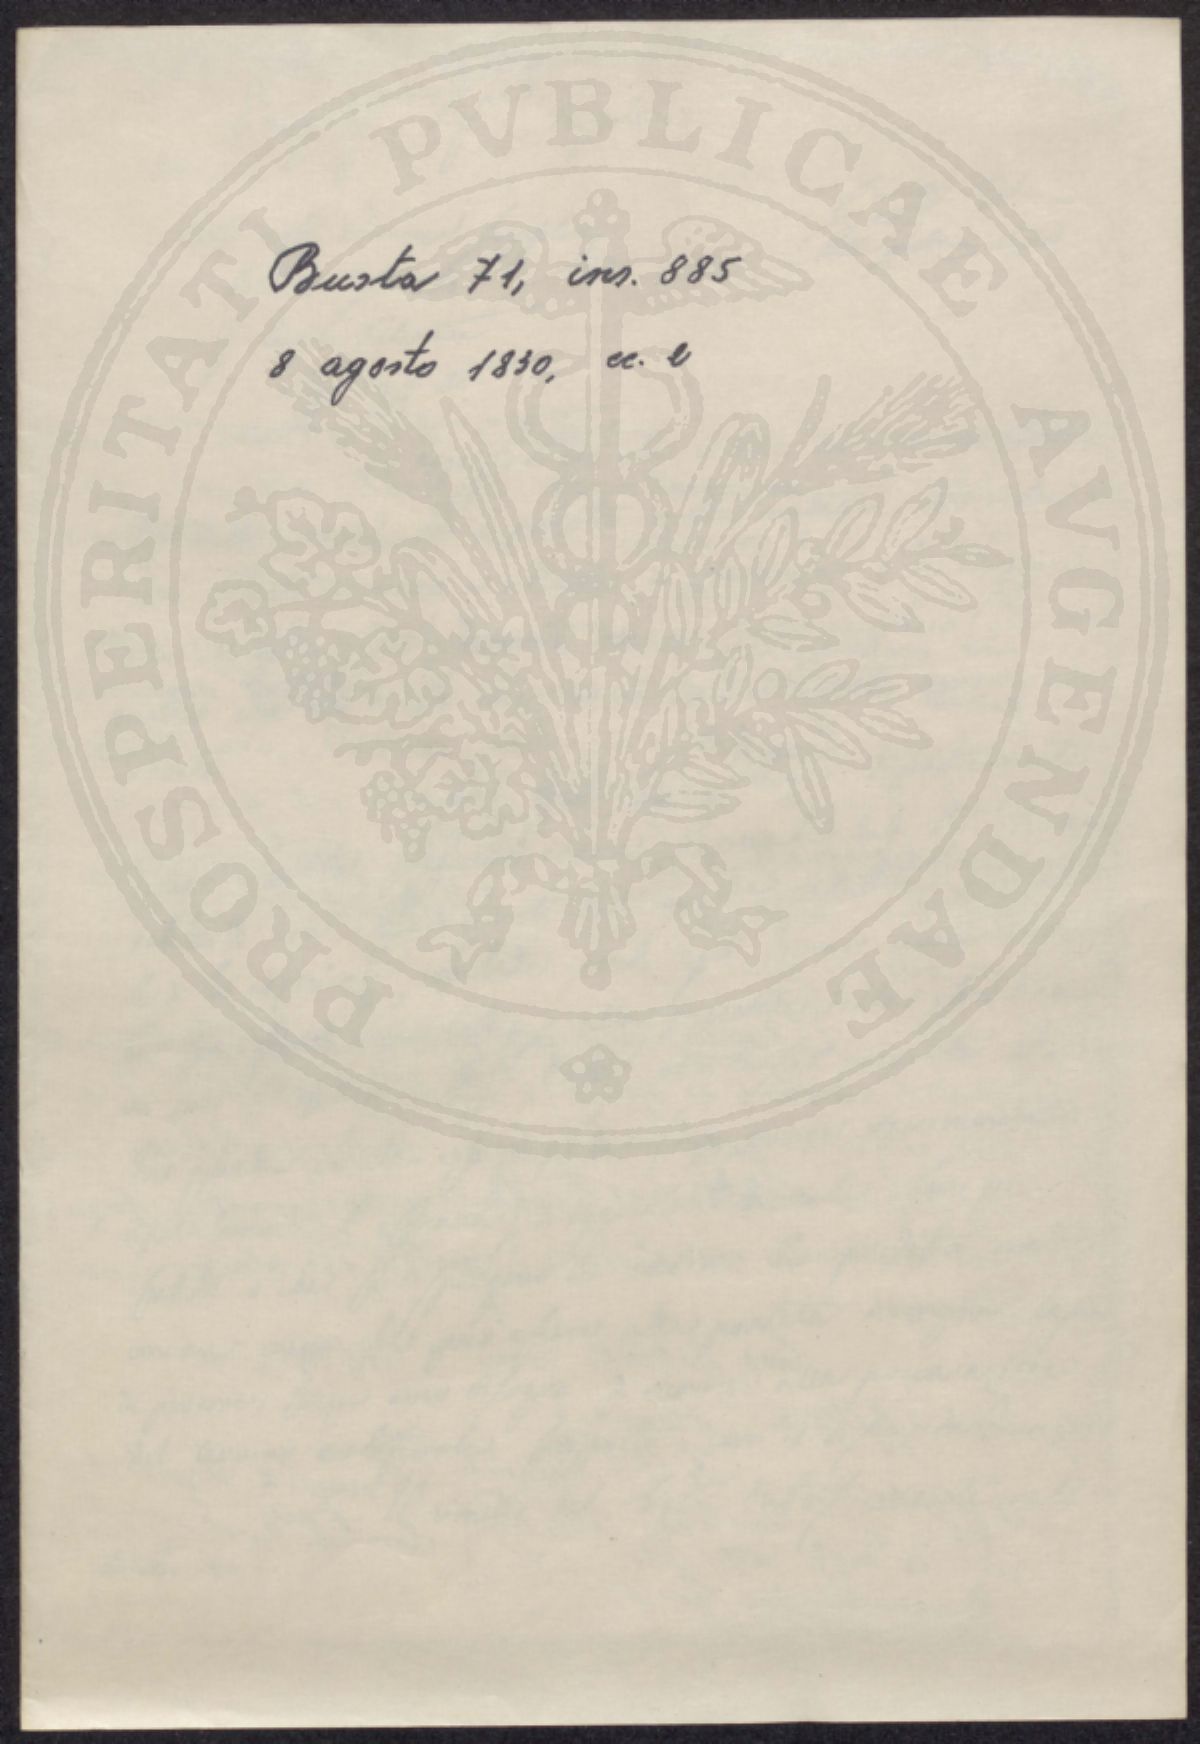 Busta 71, ins. 885
8 agosto 1830, cc. 2
PROSPERITATI PVBLICAE AVGENDAE